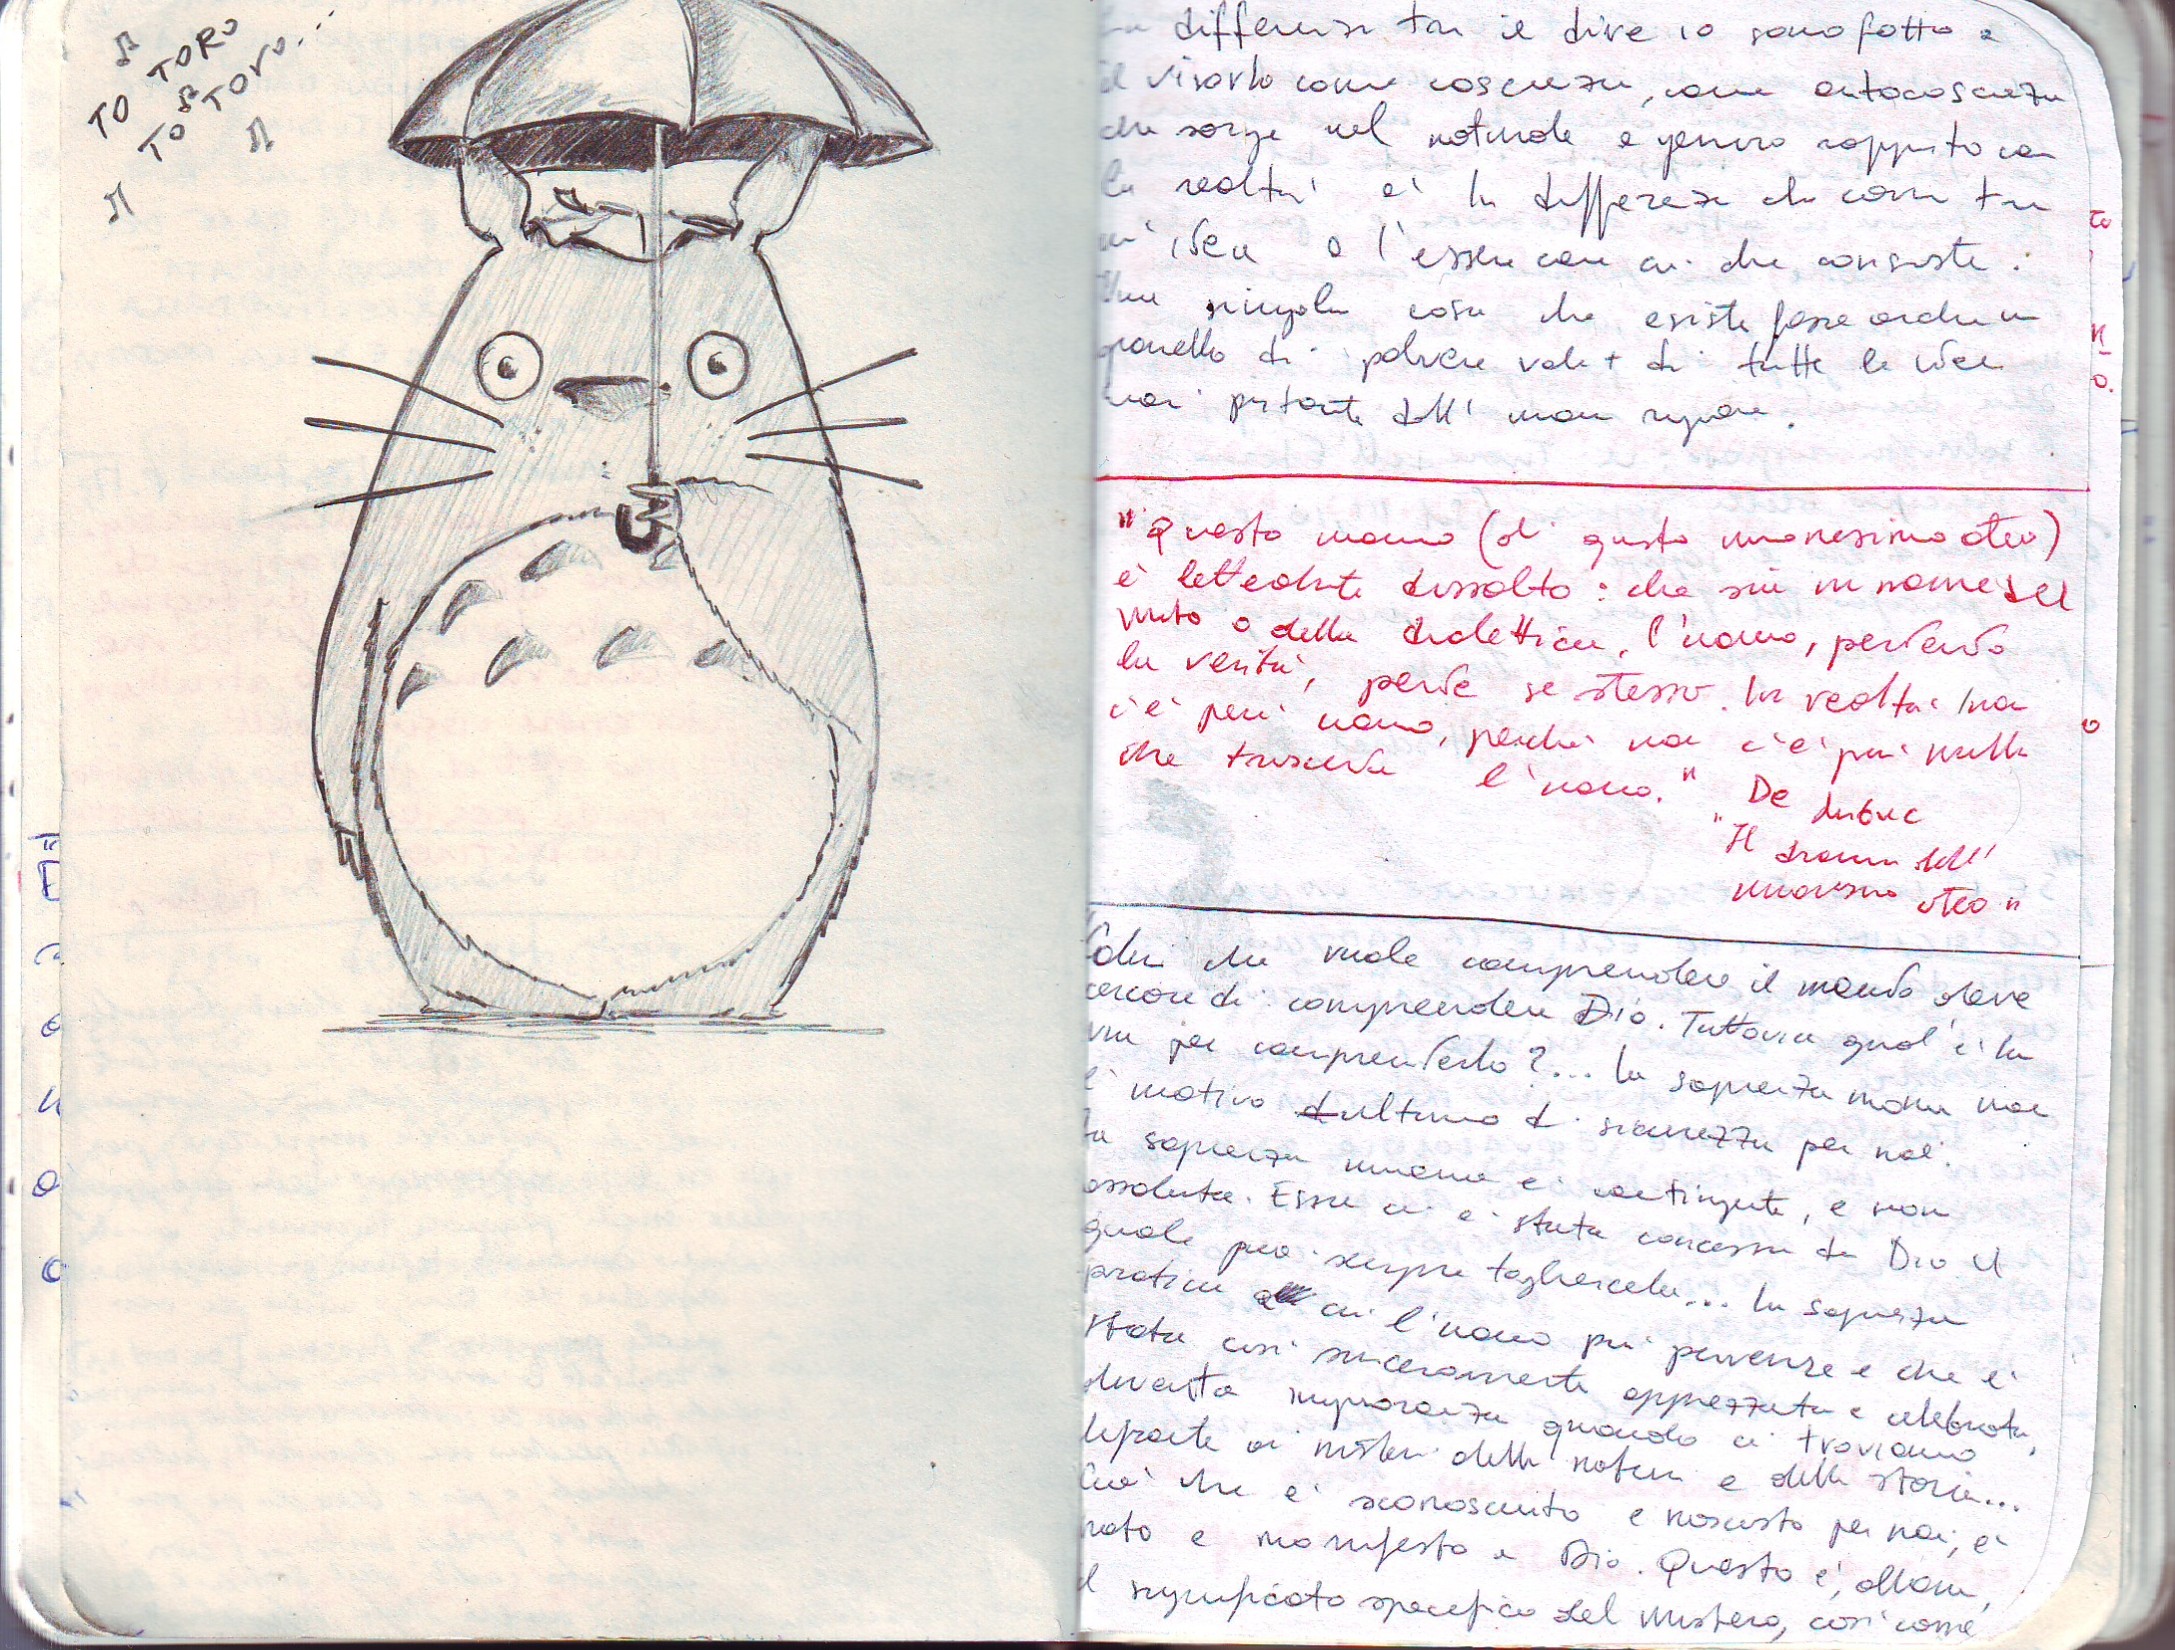 TO TORO
TO TORO...
differenza tra il dire io sono fatto e
il viverlo come coscienza, come autocoscienza
che sorge nel naturale e genuino rapporto con
la realtà è la differenza che corre tra
un'idea e l'essere con cui che consiste.
Una singola cosa che esiste fosse anche un
granello di polvere vale + di tutte le idee
mai pensate dall'umana ragione.
"Questo uomo (di questo umanesimo ateo)
è letteralmente dissolto: che sia in nome del
mito o della dialettica, l'uomo, perdendo
la verità, perde se stesso. In realtà non
c'è più uomo, perché non c'è più nulla
che trascenda l'uomo." De Lubac
"Il dramma dell'
umanesimo ateo"
Colui che vuole comprendere il mondo deve
cercare di comprendere Dio. Tuttavia qual è la
via per comprenderlo?... La sapienza umana non
è motivo ultimo di sicurezza per noi.
La sapienza umana è contingente, e non
assoluta. Essa ci è stata concessa da Dio il
quale può sempre togliercela... La sapienza
pratica a cui l'uomo può pervenire e che è
stata così sinceramente apprezzata e celebrata,
diventa ignoranza quando ci troviamo
di fronte ai misteri della natura e della storia...
Ciò che è sconosciuto e nascosto per noi, è
noto e manifesto a Dio. Questo è, allora,
il significato specifico del mistero, così come